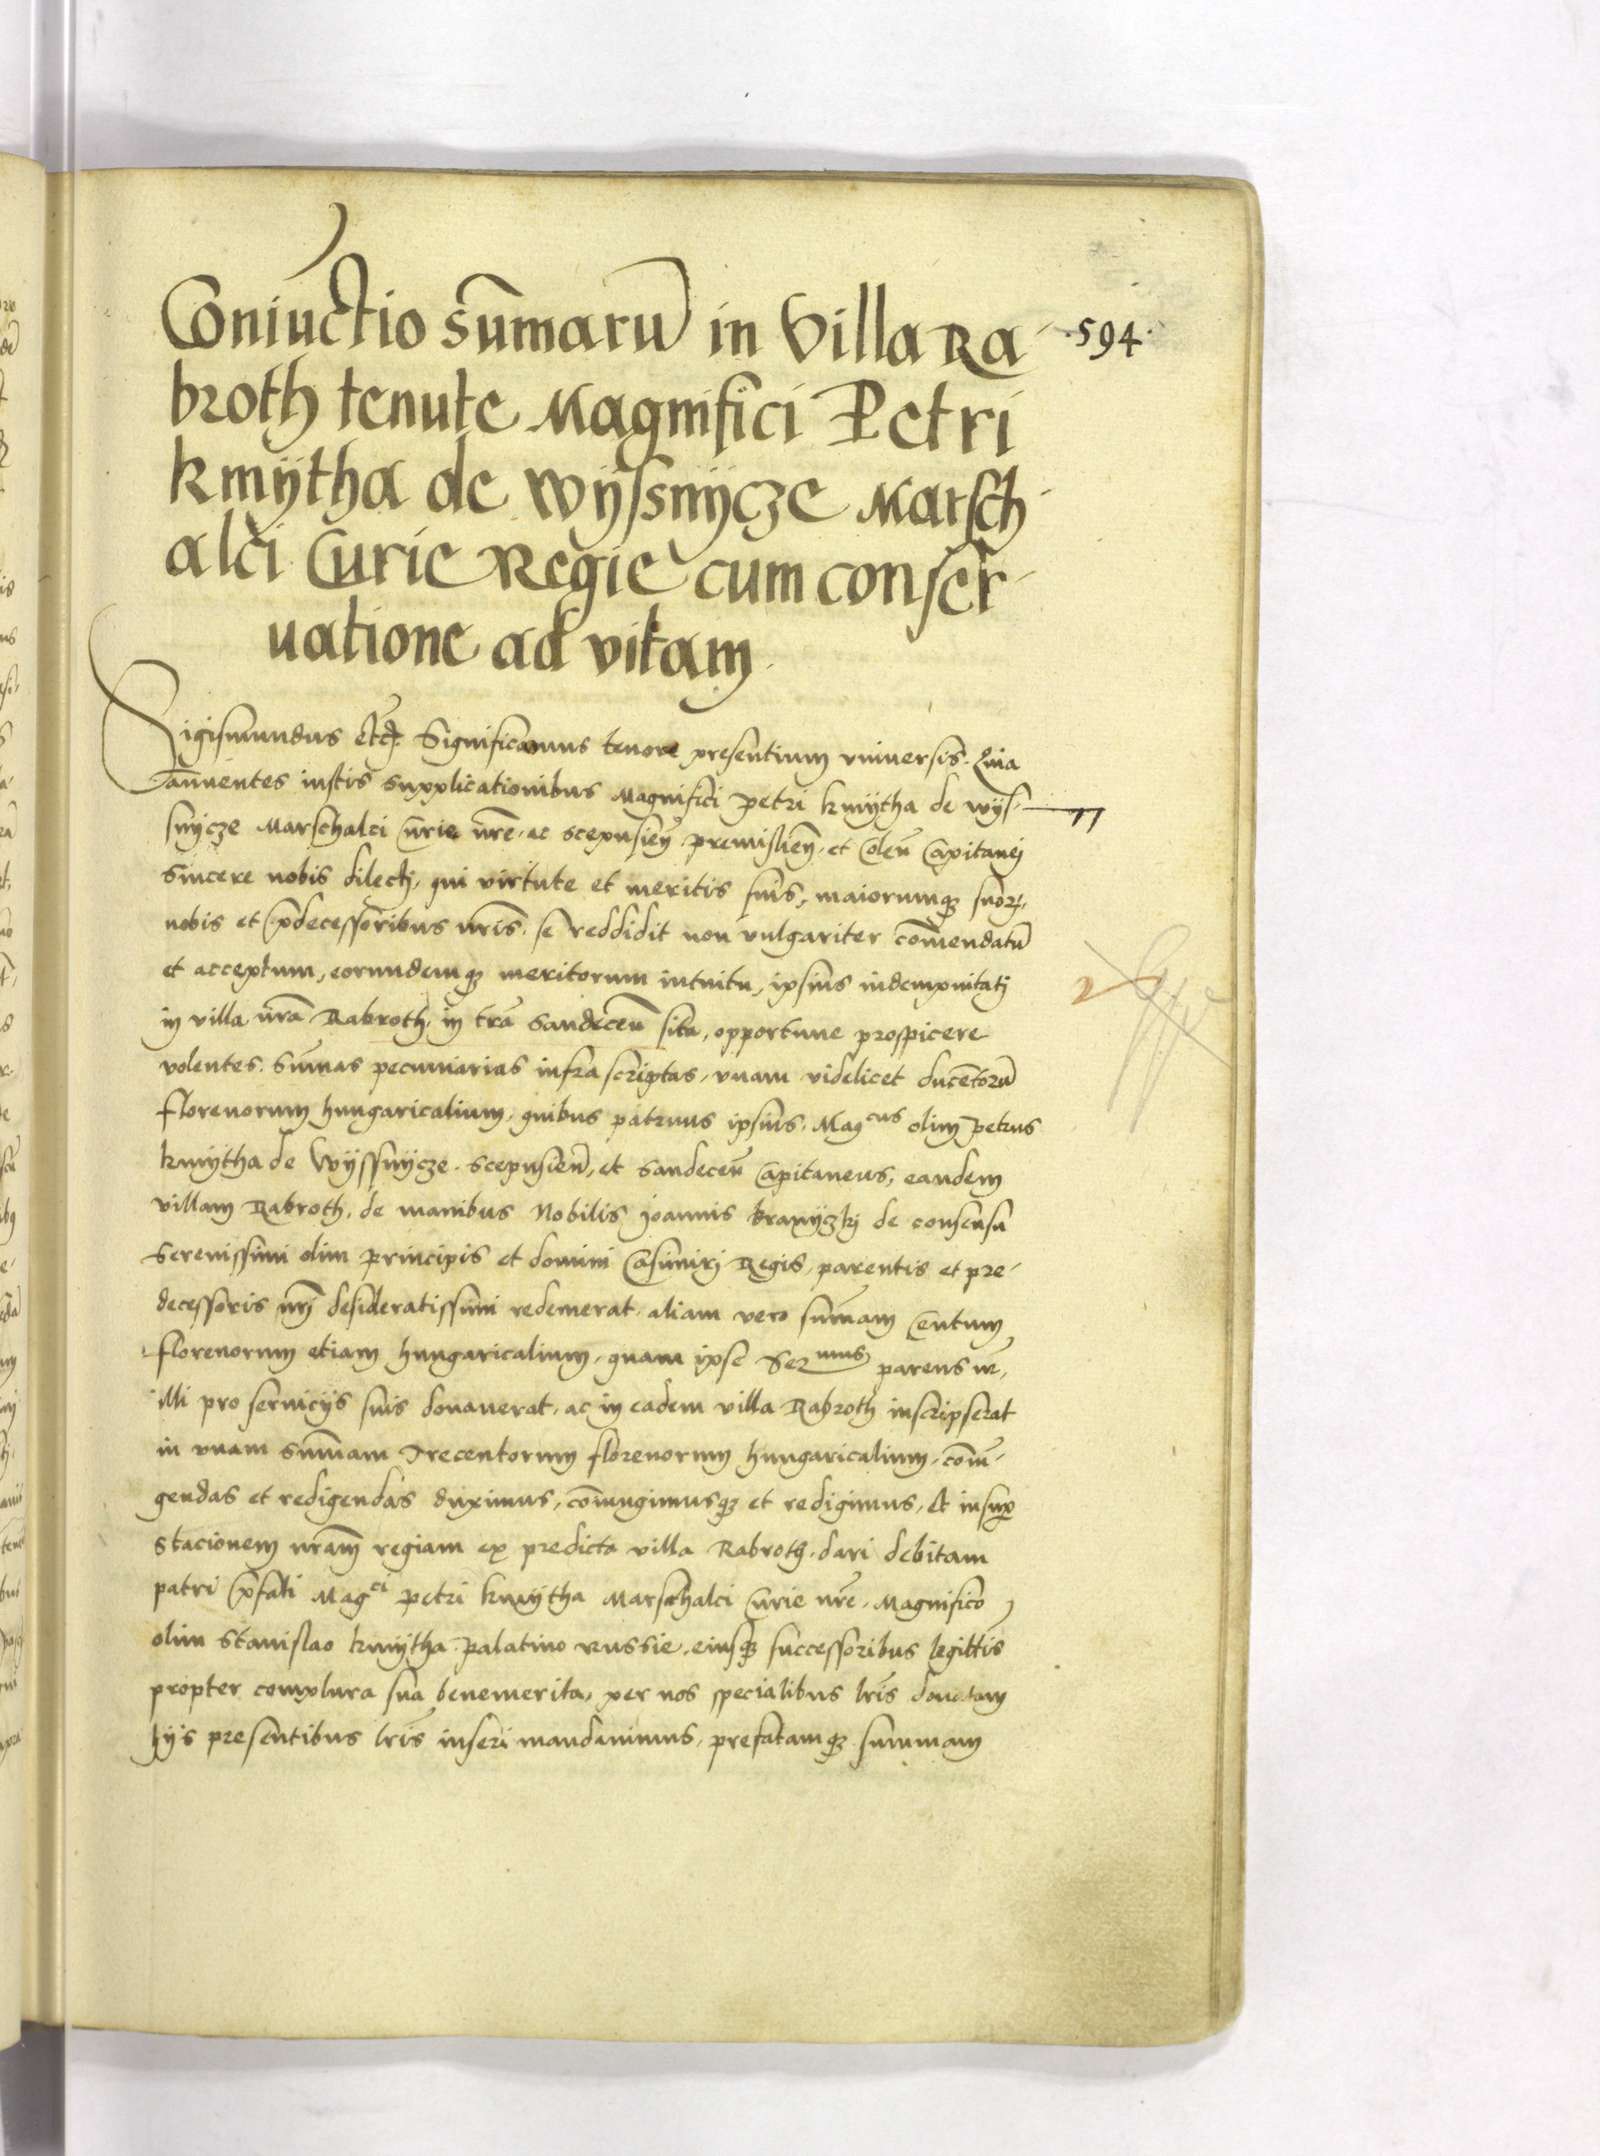 Coniuctio sūmarū in Villa Ra-
.594.
broth tenute Magnifici Petri
kmÿtha de Wÿssnÿcze Marsch-
alci Curie Regie cum conser-
uatione ad vitam.
Sigismundus etc. Significamus tenore presentium vniuersis. Quia
annuentes iustis supplicationibus Magnifici Petri kmÿtha de Wÿs-
snÿcze Marschalci Curie nr̄e, ac scepusieñ premislieñ, et Coleñ Capitanej
sincere nobis dilectj, qui virtute et meritis suis, maiorumqʒ suorʒ,
nobis et p̄decessoribus nr̄is, se reddidit non vulgariter com̄endatū
et acceptum, eorundemqʒ meritorum intuitu, ipsius indempnitatj
in villa nr̄a Rabroth, in tr̄a Sandeceñ sita, opportune prospicere
volentes. Sum̄as pecuniarias infrascriptas, vnam videlicet ducentorū
florenorum hungaricalium, quibus patruus ipsius, Mag^cus olim Petrus
kmÿtha de Wÿssnÿcze, Scepusieñ, et Sandeceñ Capitaneus, eandem
villam Rabroth, de manibus Nobilis Joannis kranÿczkj de consensu
Serenissimi olim principis et domini Casimirj Regis, parentis et pre-
decessoris nr̄j desideratissimi redemerat, aliam vero sum̄am Centum
florenorum etiam hungaricalium, quam ipse Ser^mus parens nr̄,
illi pro seruicijs suis donauerat, ac in eadem villa Rabroth inscripserat
in vnam sum̄am Trecentorum florenorum hungaricalium, coniū-
gendas et redigendas duximus, coniungimusqʒ et redigimus, Et insup̱
stacionem nr̄am regiam ex predicta villa Rabroth, dari debitam
patri p̄fati Mag^ci Petri kmÿtha Marschalci Curie nr̄e, Magnifico
olim Stanislao kmÿtha palatino Russie, eiusqʒ successoribus legittis
propter complura sua benemerita, per nos specialibus lr̄is donatam
hijs presentibus lr̄is inseri mandauimus, prefatamqʒ summam